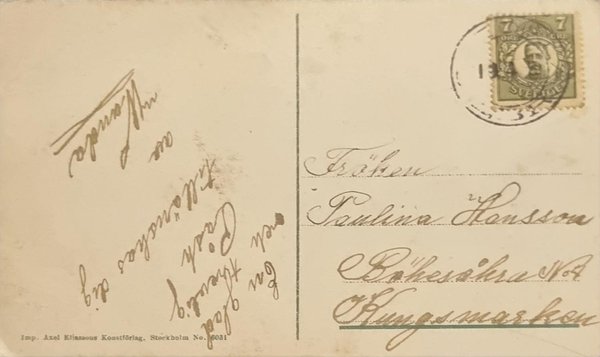 En glad
och trevlig
Påsk
tillönskas dig
av
Wanda
7 7
SVERIGE
Fröken
Paulina Hansson
Bökesåkra No 4
Kungsmarken
Imp. Axel Eliassons Konstförlag. Stockholm No. 6031